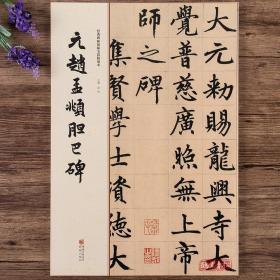 大元敕賜龍興寺大
覺普慈廣照無上帝
師之碑
集賢學士資德大
元趙孟頫胆巴碑